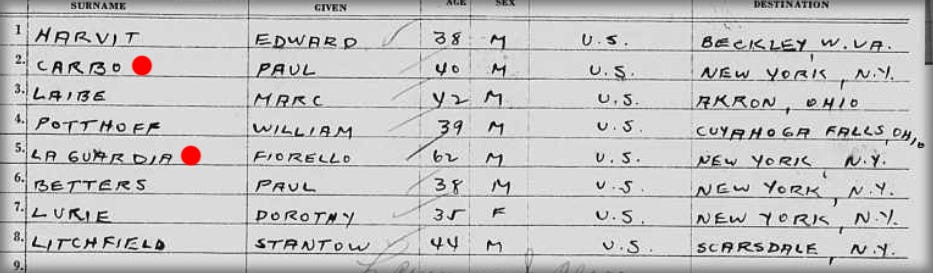 SURNAME GIVEN AGE SEX DESTINATION
1. HARVIT EDWARD 38 M U.S. BECKLEY, W. VA.
2. CARBO PAUL 40 M U.S. NEW YORK, N.Y.
3. LAIBE MARC 42 M U.S. AKRON, OHIO
4. POTTHOFF WILLIAM 39 M U.S. CUYAHOGA FALLS, OHIO
5. LA GUARDIA FIORELLO 62 M U.S. NEW YORK, N.Y.
6. BETTERS PAUL 38 M U.S. NEW YORK, N.Y.
7. LURIE DOROTHY 35 F U.S. NEW YORK, N.Y.
8. LITCHFIELD STANTOW 44 M U.S. SCARSDALE, N.Y.
9.